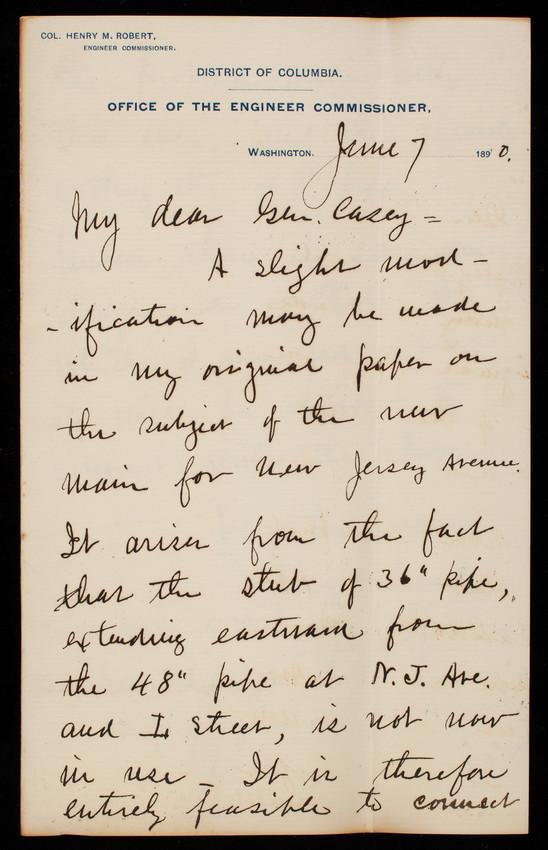 COL. HENRY M. ROBERT,
ENGINEER COMMISSIONER.
DISTRICT OF COLUMBIA.
OFFICE OF THE ENGINEER COMMISSIONER,
WASHINGTON. June 7 1890.
My dear Gen. Casey =
A slight mod -
- ification may be made
in my original paper on
the subject of the new
main for New Jersey Avenue.
It arises from the fact
that the stub of 36" pipe,
extending eastward from
the 48" pipe at N.J. Ave.
and I street, is not now
in use - It is therefore
entirely feasible to connect